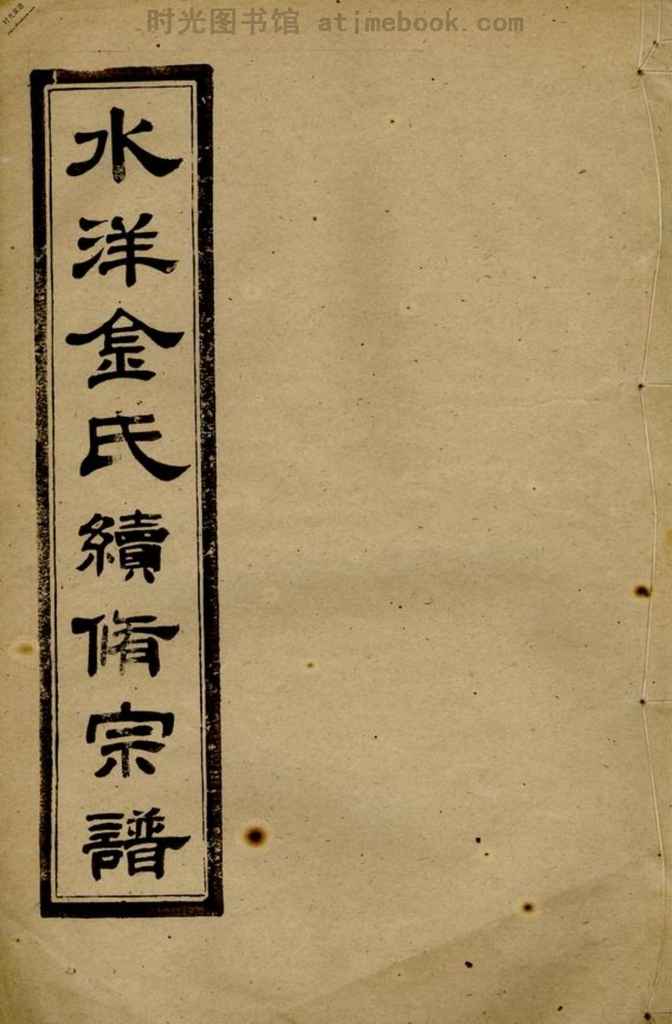 时光图书馆 atimebook.com
水洋金氏續脩宗譜